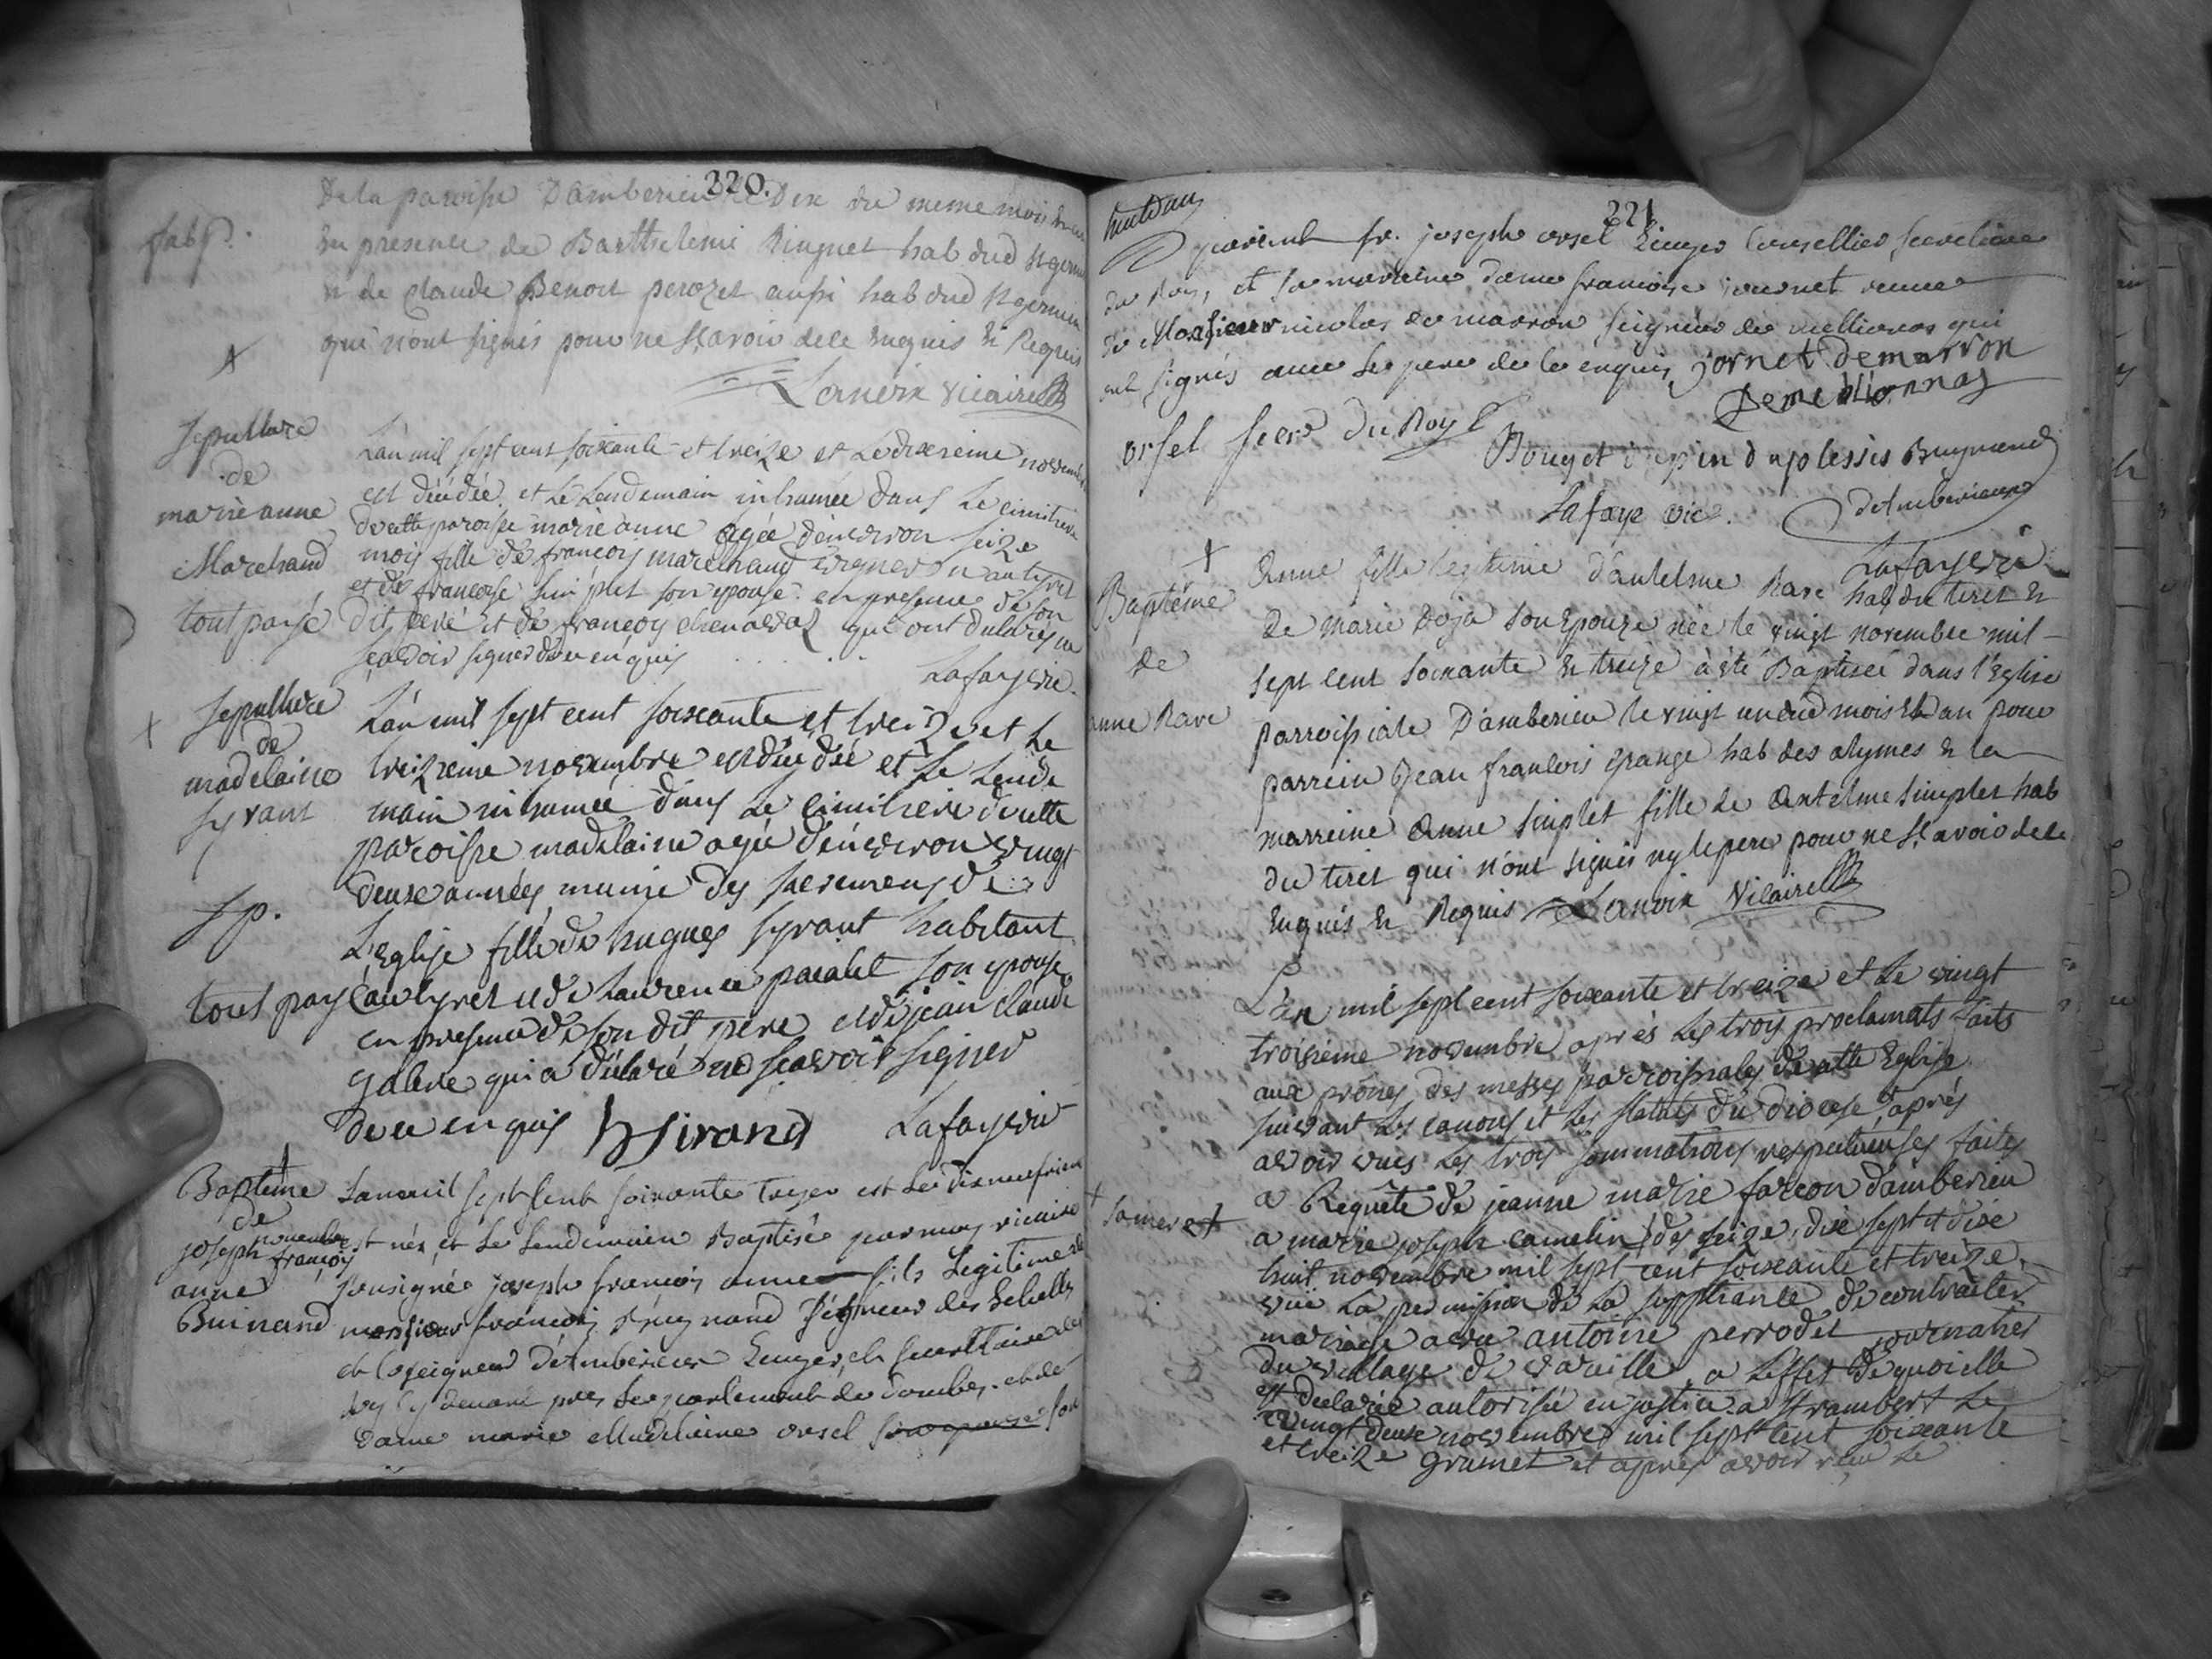 220.
fab p.
De la paroisse D'amberieu le Dix du meme mois
En presence de Barthelemi Ringuet hab dud St germain
et de Claude Benoit perozet aussi hab dud St germain
qui n'ont signés pour ne sçavoir de ce enquis et Requis
Lanvix Vicaire
Sepulture
de
marie anne
Marchand
tout payé
L'an mil sept cent soixante et treize et le dixieme novembre
est décédée et le lendemain inhumée dans le cimitiere
de cette paroisse marie anne agée d'environ seize
mois fille de françois marchand vigneron au tiret
et de françoise simplet son epouse en presence de son
dit pere et de françois chenavaz qui ont declarés ne
sçavoir signer de ce enquis
Lafaye vic.
sepulture
de
madelaine
syrant
sp.
tout payé
L'an mil sept cent soixante et treize et le
treizieme novembre est décédée et le lende
main inhumée dans le cimitiere de cette
paroisse madelaine agée d'environ vingt
deux années munie des sacremens de
L'eglise fille de hugues syrant habitant
au tyret et de Laurence paralet son epouse
en presence de son dit pere et de jean claude
galene qui a déclaré ne sçavoir signer
de ce enquis h Sirand Lafaye vic
Baptême
de
joseph françois
anne
Buinand
L'an mil sept cent soixante treize et le dixneufvieme
novembre est né et le lendemain Baptisé par moy vicaire
sousigné joseph françois anne fils Legitime de
monsieur françois Bruynand seigneur des Echelles
et Coseigneur d'Amberieu Ecuyer, et secretaire du
Roy cy devant pres le parlement de dombes et de
dame marie Madeleine orsel son epouse son
221
parient sr. joseph orsel Ecuyer Conseiller secretaire
du Roy, et sa marreine dame françoise journet veuve
de Monsieur nicolas de marron seigneur de meillionas qui
ont signés avec le pere de ce enquis jornet Demarron
Demeillionnas
orsel secre du Roy
Bouget Dupin duplessis Bruynand
Lafaye vic. d'Amberieux
Lafaye vic
Baptême
de
anne Rave
Anne fille legitime d'antelme Rave hab du tiret et
de marie Doja son Epouze née le vingt novembre mil
sept cent soixante et treize à été Baptisée dans l'Eglise
parroissiale D'amberieu le vingt un dud mois et an pour
parrein Jean francois grange hab des alymes et la
marreine Anne simplet fille de Antelme simplet hab
du tiret qui n'ont signés ny le pere pour ne sçavoir de ce
Enquis et Requis Lanvix Vicaire
L'an mil sept cent soixante et treize et le vingt
troisiéme novembre après les trois proclamats faits
aux prônes des messes parroissiales de cette Eglise
suivant les canons et les statuts du diocese et aprés
avoir vues les trois sommations respectueuses faites
a Requête de jeanne marie farcon d'amberieu
a marie joseph camelin des seize, dix sept et dix
huit novembre mil sept cent soixante et treize,
vüe la permission de la suppliante de contracter
mariage avec antoine perrodet journalier
du village de vareille, a l'effet de quoi elle
est declarée autorisée en justice a St rambert le
vingt deux novembre mil sept cent soixante
et treize Grumet et après avoir reçu le